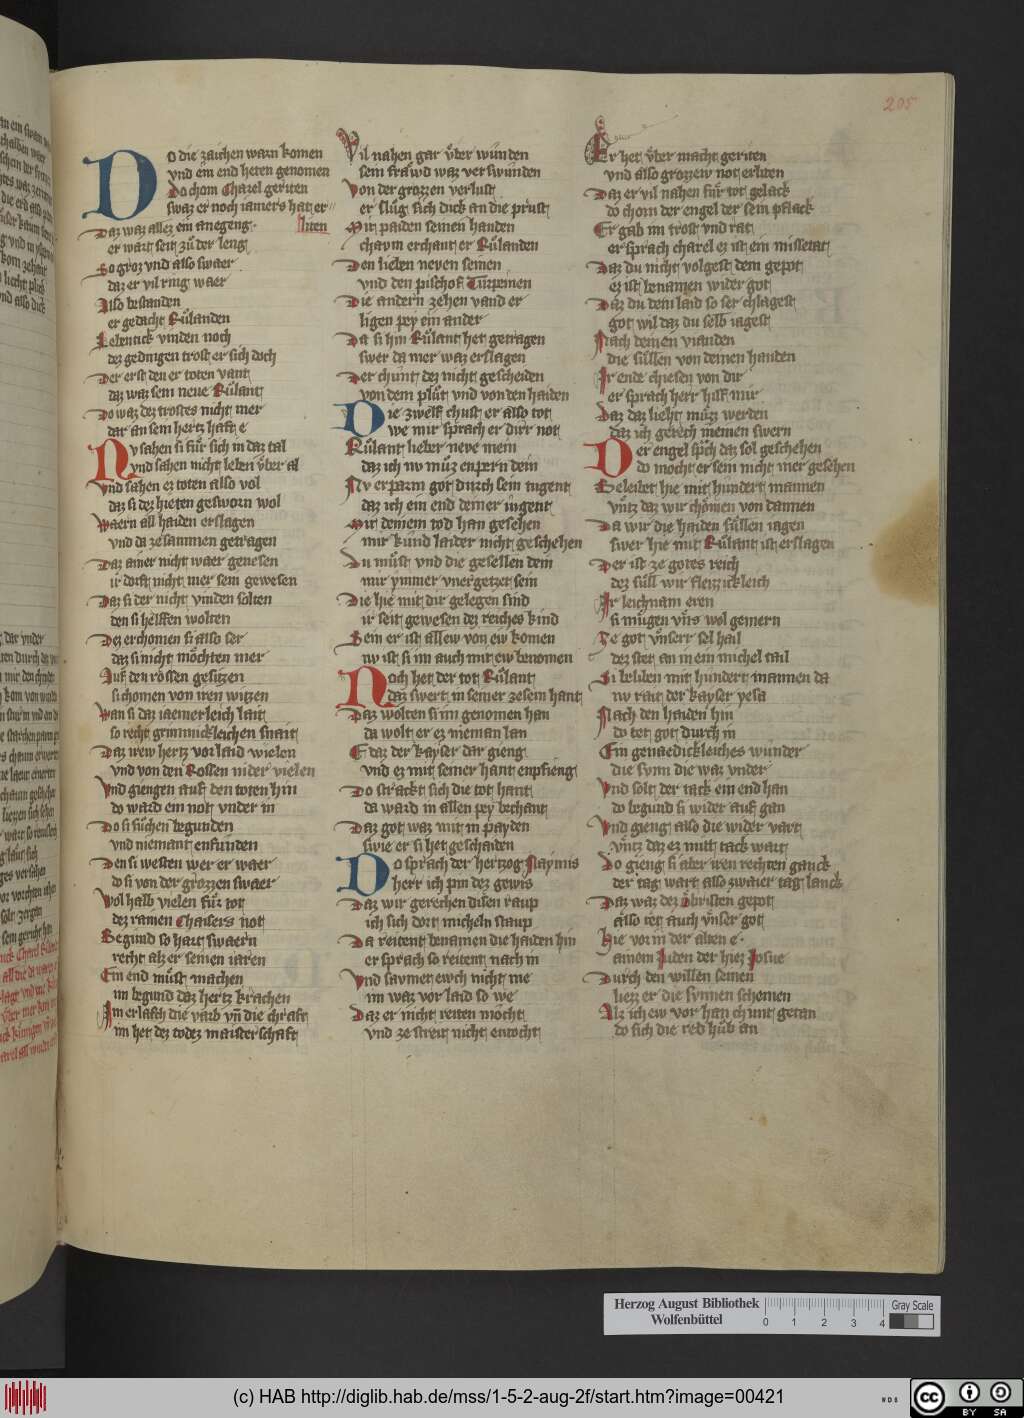 205
Do die zaichen warn komen
vnd ein end heten genomen
Do chom Charel geriten
swaz er noch iamers hat er
liten
Daz waz allez ein anegeng
er wart seit zů der leng
So groz vnd also swaer
daz er vil ring waer
Also bestanden
er gedacht Růlanden
Lebentick vinden noch
dez gedingen trost er sich doch
Der erst den er toten vant
daz waz sein neue Růlant
Do waz dez trostes nicht mer
dar an sein hertz haft e
Nv sahen si fůr sich in daz tal
vnd sahen nicht leben vͤber al
Vnd sahen ez toten also vol
daz si dez hieten gesworn wol
Waern all haiden erslagen
vnd da zesammen getragen
Daz ainer nicht waer genesen
ir dorft nicht mer sein gewesen
Daz si der nicht vinden solten
den si helffen wolten
Dez erchomen si also ser
daz si nicht mochten mer
Auf den rossen gesitzen
si chomen von iren witzen
Wan si daz iaemerleich lait
so recht grimmickleichen snait
Daz irew hertz vor laid wielen
vnd von den Rossen nider vielen
Vnd giengen auf den toten hin
do ward ein not vnder in
Do si sůchen begunden
vnd niemant enfunden
Den si westen wer er waer
do si von der grozzen swaer
Wol halb vielen fůr tot
dez ramen Chaisers not
Begund so haut swaern
recht alz er seinen iaren
Ein end můst machen
im begund daz hertz krachen
Im erlasch die varb vn̄ die chraft
im het dez todez maisterschaft
Vil nahen gar vͤber wunden
sein frawd waz verswunden
Von der grozzen verlust
er slůg sich dick an die prust
Mit paiden seinen handen
chavm erchant er Růlanden
Den lieben neven seinen
vnd den pischof Turpeinen
Die andern zehen vand er
ligen pey ein ander
Da si hin Růlant het getragen
swer da mer waz erslagen
Der chunt dez nicht gescheiden
von dem plůt vnd von den haiden
Die zwelf chust er also tot
we mir sprach er dirr not
Růlant lieber neve mein
daz ich nv můz enpern dein
Nv erparm got durch sein tugent
daz ich ein end deiner iugent
Mit deinem tod han gesehen
mir kund laider nicht geschehen
Du můst vnd die gesellen dein
mir ymmer vnergetzet sein
Die hie mit dir gelegen sind
ir seit gewesen dez reiches kind
Sein er ist allew von ew komen
nv ist si im auch mit ew benomen
Noch het der tot Růlant
daz swert in seiner zesem hant
Daz wolten si im genomen han
da wolt er ez nieman lan
E daz der kayser dar gieng
vnd ez mit seiner hant enpfieng
Do strackt sich die tot hant
da ward in allen pey bechant
Daz got waz mit in payden
swie er si het geschaiden
Do sprach der hertzog Naymis
herr ich pin dez gewis
Daz wir gerechen disen raup
ich sich dort micheln staup
Da reitent benamen die haiden hin
er sprach so reitent nach in
Vnd savmet ewch nicht me
im waz vor laid so we
Daz er nicht reiten mocht
vnd ze streit nicht entocht
Er het vͤber macht geriten
vnd also grozzew not erliten
Daz er vil nahen fůr tot gelack
do chom der engel der sein pflack
Er gab im trost vnd rat
er sprach charel ez ist ein missetat
Daz du nicht volgest dem gepot
ez ist benamen wider got
Daz du dein laid so ser chlagest
got wil daz du selb iagest
Nach deinen vianden
die sullen von deinen handen
Ir ende chiesen von dir
er sprach herr hilf mir
Daz daz lieht můzz werden
daz ich gerech meinen swern
Der engel sp̄ch daz sol geschehen
do mocht er sein nicht mer gesehen
Beleibet hie mit hundert mannen
vntz daz wir chomen von dannen
Da wir die haiden sullen iagen
swer hie mit Růlant ist erslagen
Der ist ze gotes reich
dez sull wir fleizzickleich
Ir leichnam eren
si mugen vns wol gemern
Ze got vnserr sel hail
dez stet an in ein michel tail
Si beliben mit hundert mannen da
nv rait der kayser yesa
Nach den haiden hin
do tet got durch in
Ein genaedickleiches wunder
die synn die waz vnder
Vnd solt der tack ein end han
do begund si wider auf gan
Vnd gieng also die wider vart
vntz daz ez mitt tack wart
Do gieng si aber iren rechten ganck
der tag wart also zwaier tag lanck
Daz waz dez obristen gepot
also tet auch vnser got
Hie vor in der alten e
ainem Juden der hiez Josue
Durch den willen seinen
liezz er die synnen scheinen
Alz ich ew vor han chunt getan
do sich die red hub an
Herzog August Bibliothek
Wolfenbüttel
0 1 2 3 4
Gray Scale
(c) HAB http://diglib.hab.de/mss/1-5-2-aug-2f/start.htm?image=00421
WDB
cc BY SA